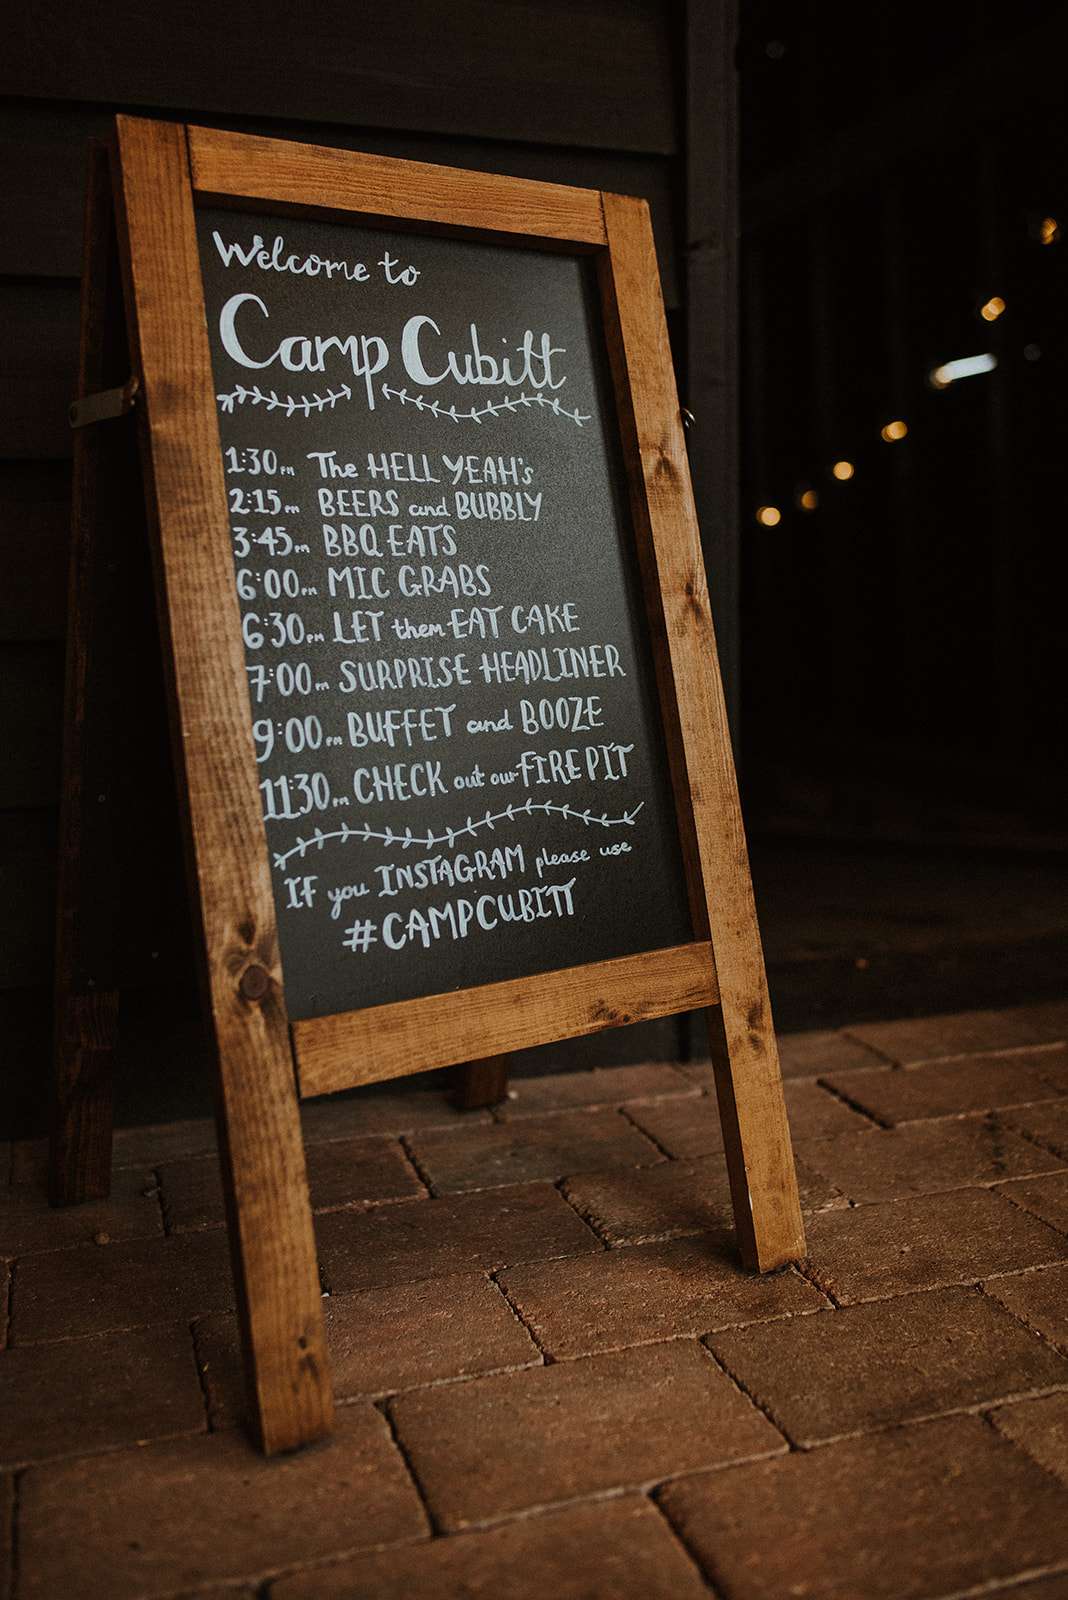 Welcome to
Camp Cubitt
1:30pm The HELL YEAH's
2:15pm BEERS and BUBBLY
3:45pm BBQ EATS
6:00pm MIC GRABS
6:30pm LET them EAT CAKE
7:00pm SURPRISE HEADLINER
9:00pm BUFFET and BOOZE
11:30pm CHECK out our FIRE PIT
IF you INSTAGRAM please use
#CAMPCUBITT